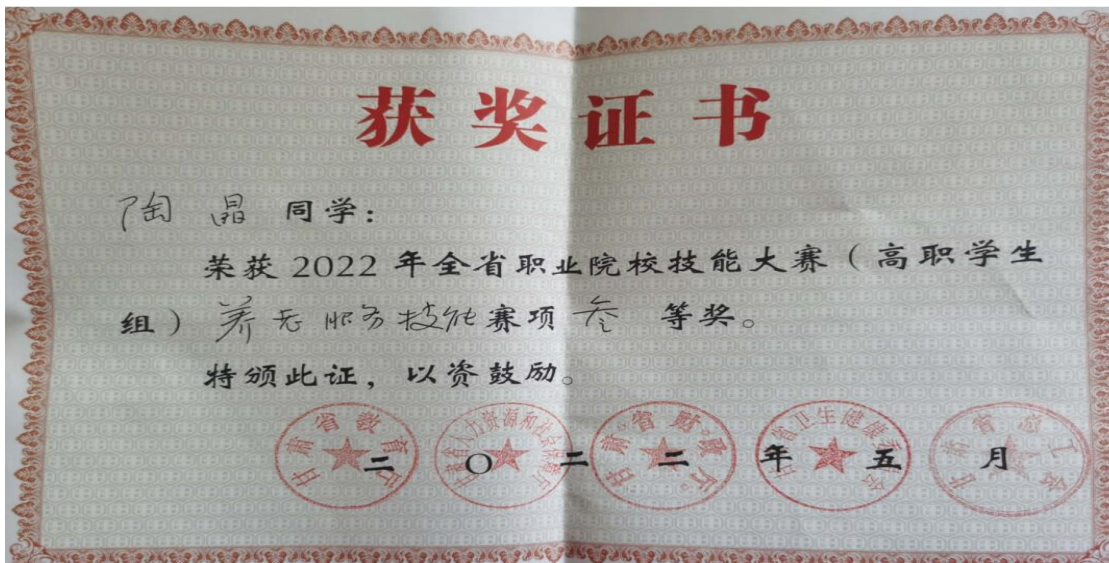 获奖证书
陶晶同学：
荣获2022年全省职业院校技能大赛（高职学生
组）养老服务技能赛项叁等奖。
特颁此证，以资鼓励。
甘肃省教育厅
甘肃省人力资源和社会保障厅
甘肃省财政厅
甘肃省卫生健康委员会
甘肃省总工会
二〇二二年五月